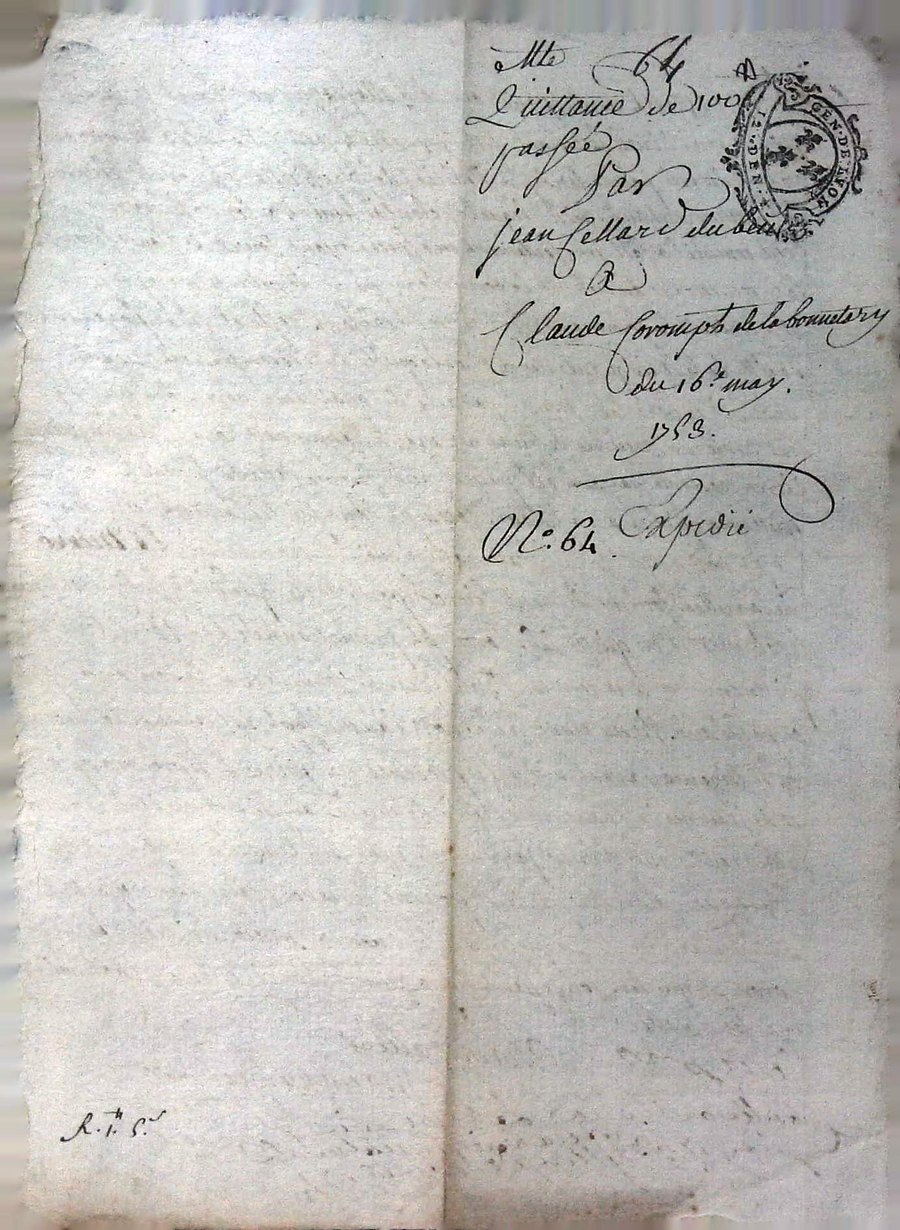 64
Quittance de 100
passée
Par
jean Cellard du
A
Claude Coromph de la bonnetary
du 16e may.
1753.
No. 64 Expedié
GEN. DE. LYON
12. DEN. 4.